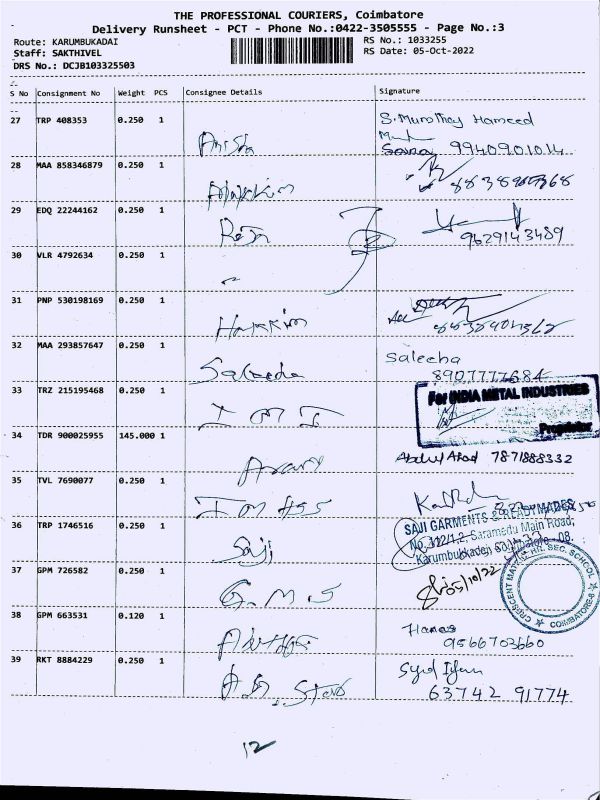 THE PROFESSIONAL COURIERS, Coimbatore
Delivery Runsheet - PCT - Phone No.:0422-3505555 - Page No.:3
Route: KARUMBUKADAI
RS No.: 1033255
Staff: SAKTHIVEL
RS Date: 05-Oct-2022
DRS No.: DCJB103325503
S No Consignment No Weight PCS Consignee Details Signature
27 TRP 408353 0.250 1 Anisha S. Hameed
9940901014
28 MAA 858346879 0.250 1
29 EDQ 22244162 0.250 1 Raja
9629143489
30 VLR 4792634 0.250 1
31 PNP 530198169 0.250 1 Hakkim
32 MAA 293857647 0.250 1 Saleecha
Saleecha
8907777684
33 TRZ 215195468 0.250 1 I M I
For INDIA METAL INDUSTRIES
Proprietor
34 TDR 900025955 145.000 1
Abdul Ahad 7871888332
35 TVL 7690077 0.250 1
36 TRP 1746516 0.250 1 Saji
SAJI GARMENTS & READYMADES
No. 112/1,2, Saramedu Main Road,
Karumbukadai, Coimbatore - 08.
37 GPM 726582 0.250 1 G.M.S
05/10/22
CRESCENT MAT. HR. SEC. SCHOOL
COIMBATORE-8
38 GPM 663531 0.120 1
9566703660
39 RKT 8884229 0.250 1 A.B. Store Syed
63742 91774
12